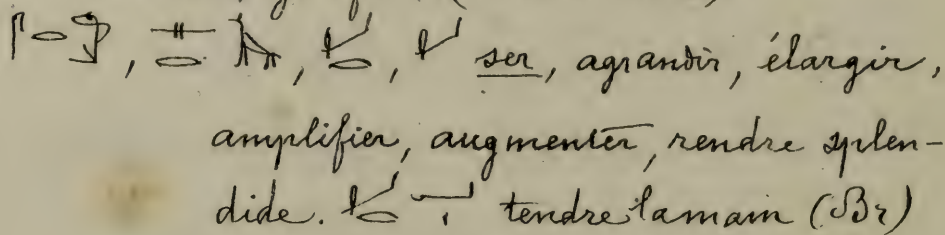 , , , ser, agrandir, élargir,
amplifier, augmenter, rendre splen-
dide. tendre la main (Br)